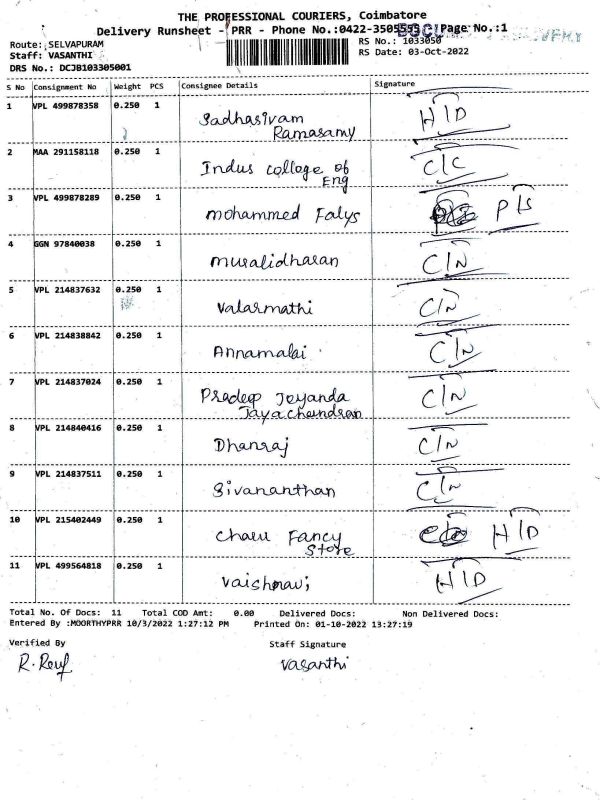 THE PROFESSIONAL COURIERS, Coimbatore
Delivery Runsheet - PRR - Phone No.:0422-3505555 Page No.:1
Route: SELVAPURAM RS No.: 1033050
Staff: VASANTHI RS Date: 03-Oct-2022
DRS No.: DCJB103305001
S No Consignment No Weight PCS Consignee Details Signature
1 VPL 499878358 0.250 1 Sadhasivam H/D
Ramasamy
2 MAA 291158118 0.250 1 Indus college of C/C
Eng
3 VPL 499878289 0.250 1 mohammed Falys P/S
4 GGN 97840038 0.250 1 muralidharan C/N
5 VPL 214837632 0.250 1 Valarmathi C/N
6 VPL 214838842 0.250 1 Annamalai C/N
7 VPL 214837024 0.250 1 Pradeep Jeyanda C/N
Jayachandran
8 VPL 214840416 0.250 1 Dhanraj C/N
9 VPL 214837511 0.250 1 Sivananthan C/N
10 VPL 215402449 0.250 1 Charu Fancy H/D
Store
11 VPL 499564818 0.250 1 Vaishnavi H/D
Total No. Of Docs: 11 Total COD Amt: 0.00 Delivered Docs: Non Delivered Docs:
Entered By :MOORTHYPRR 10/3/2022 1:27:12 PM Printed On: 01-10-2022 13:27:19
Verified By Staff Signature
vasanthi